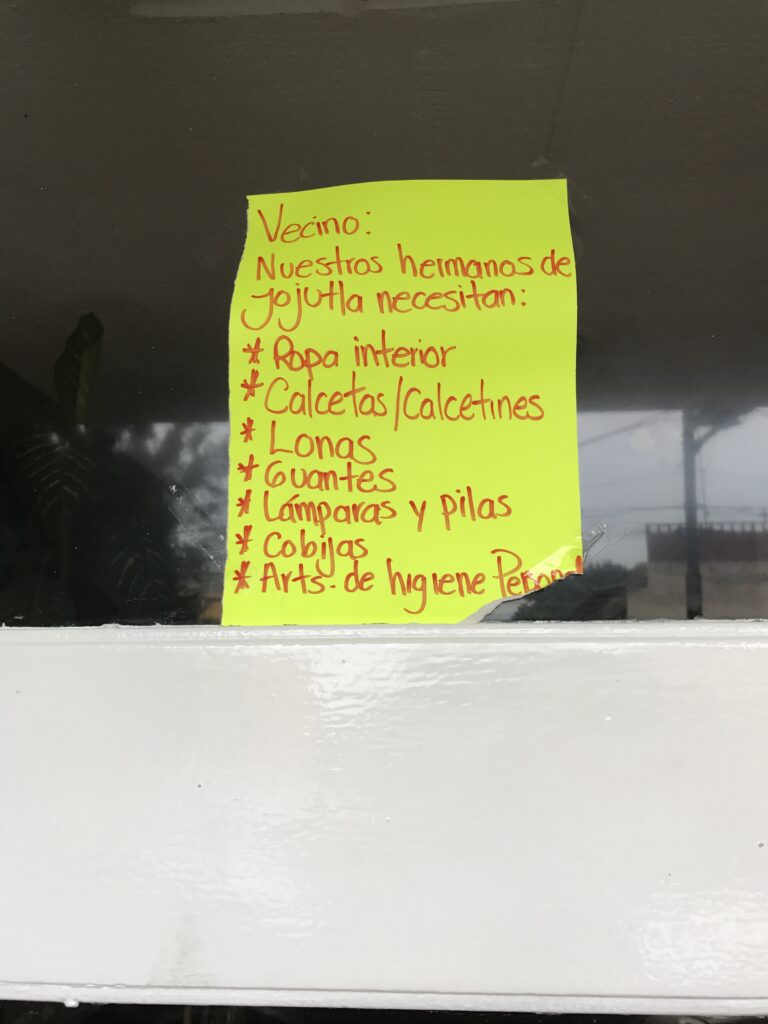 Vecino:
Nuestros hermanos de
Jojutla necesitan:
* Ropa interior
* Calcetas/Calcetines
* Lonas
* Guantes
* Lámparas y pilas
* Cobijas
* Arts. de higiene Personal